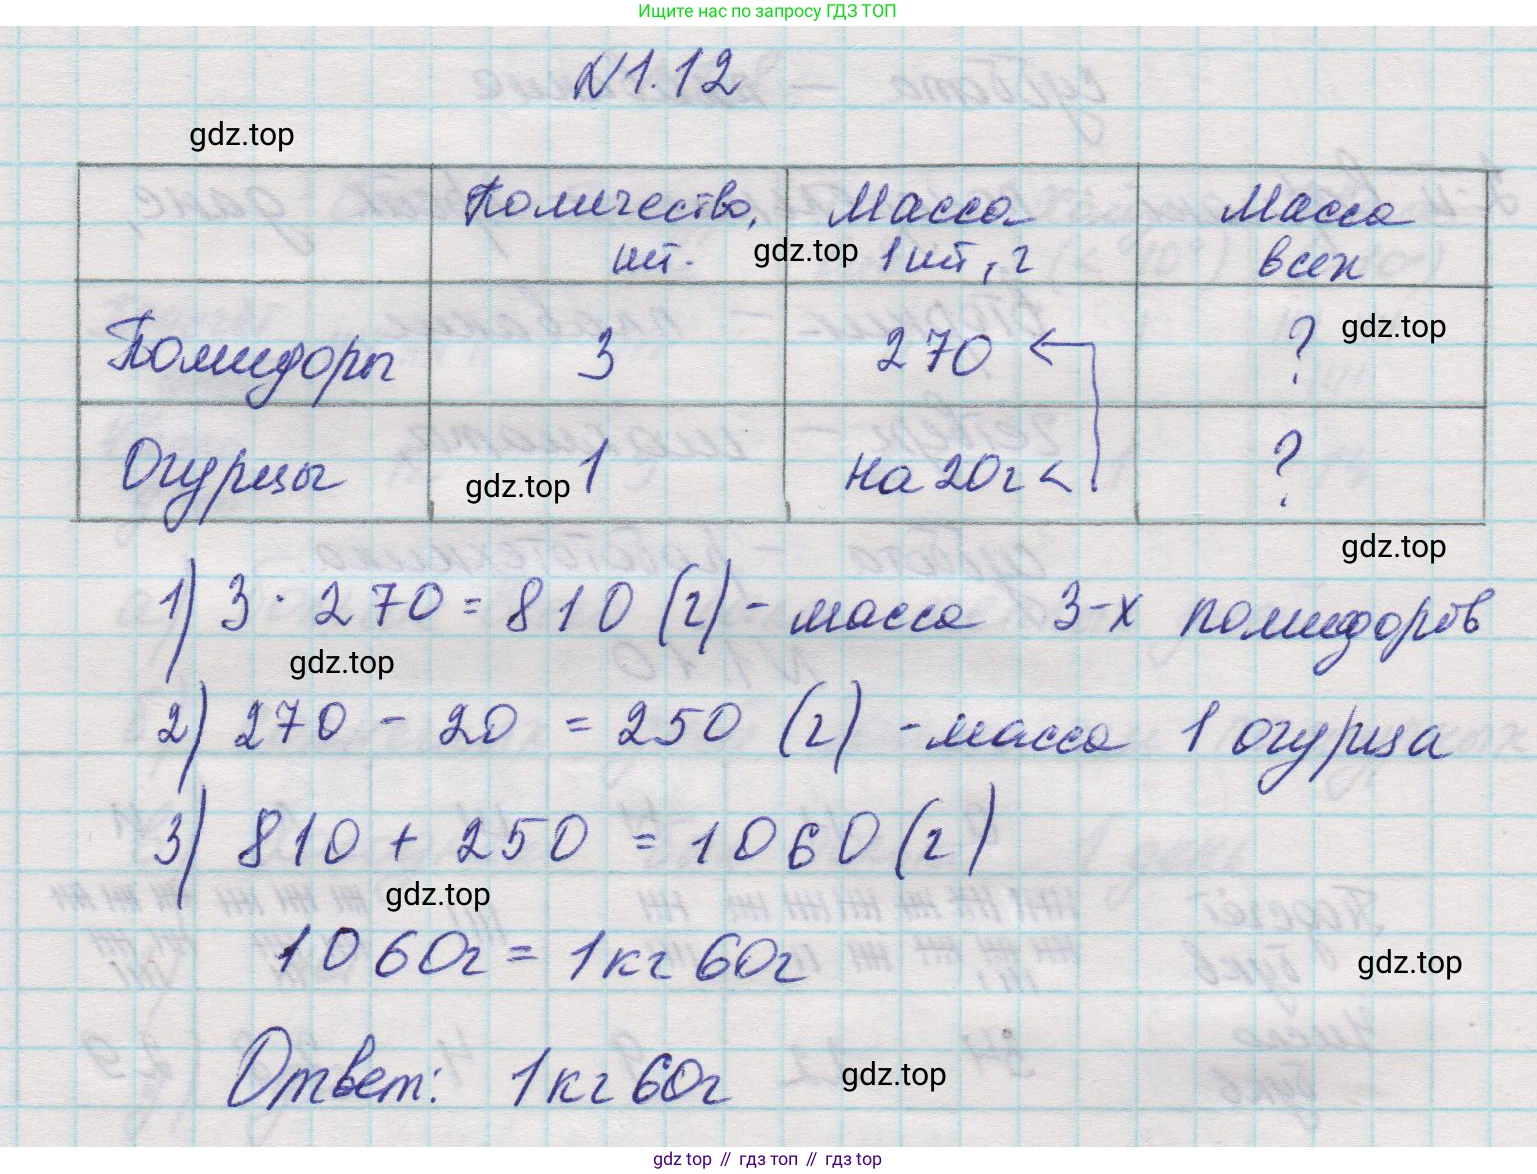 Ищите нас по запросу ГДЗ ТОП
N 1.12
gdz.top
Количество, шт. Масса 1 шт, г Масса всех
gdz.top
Помидоры 3 270 ?
gdz.top
Огурцы 1 на 20г < ?
gdz.top
gdz.top
1) 3 · 270 = 810 (г) - масса 3-х помидоров
gdz.top
2) 270 - 20 = 250 (г) - масса 1 огурца
3) 810 + 250 = 1060 (г)
gdz.top
1060г = 1кг 60г
gdz.top
Ответ: 1кг 60г
gdz.top
gdz top // гдз топ // гдз top